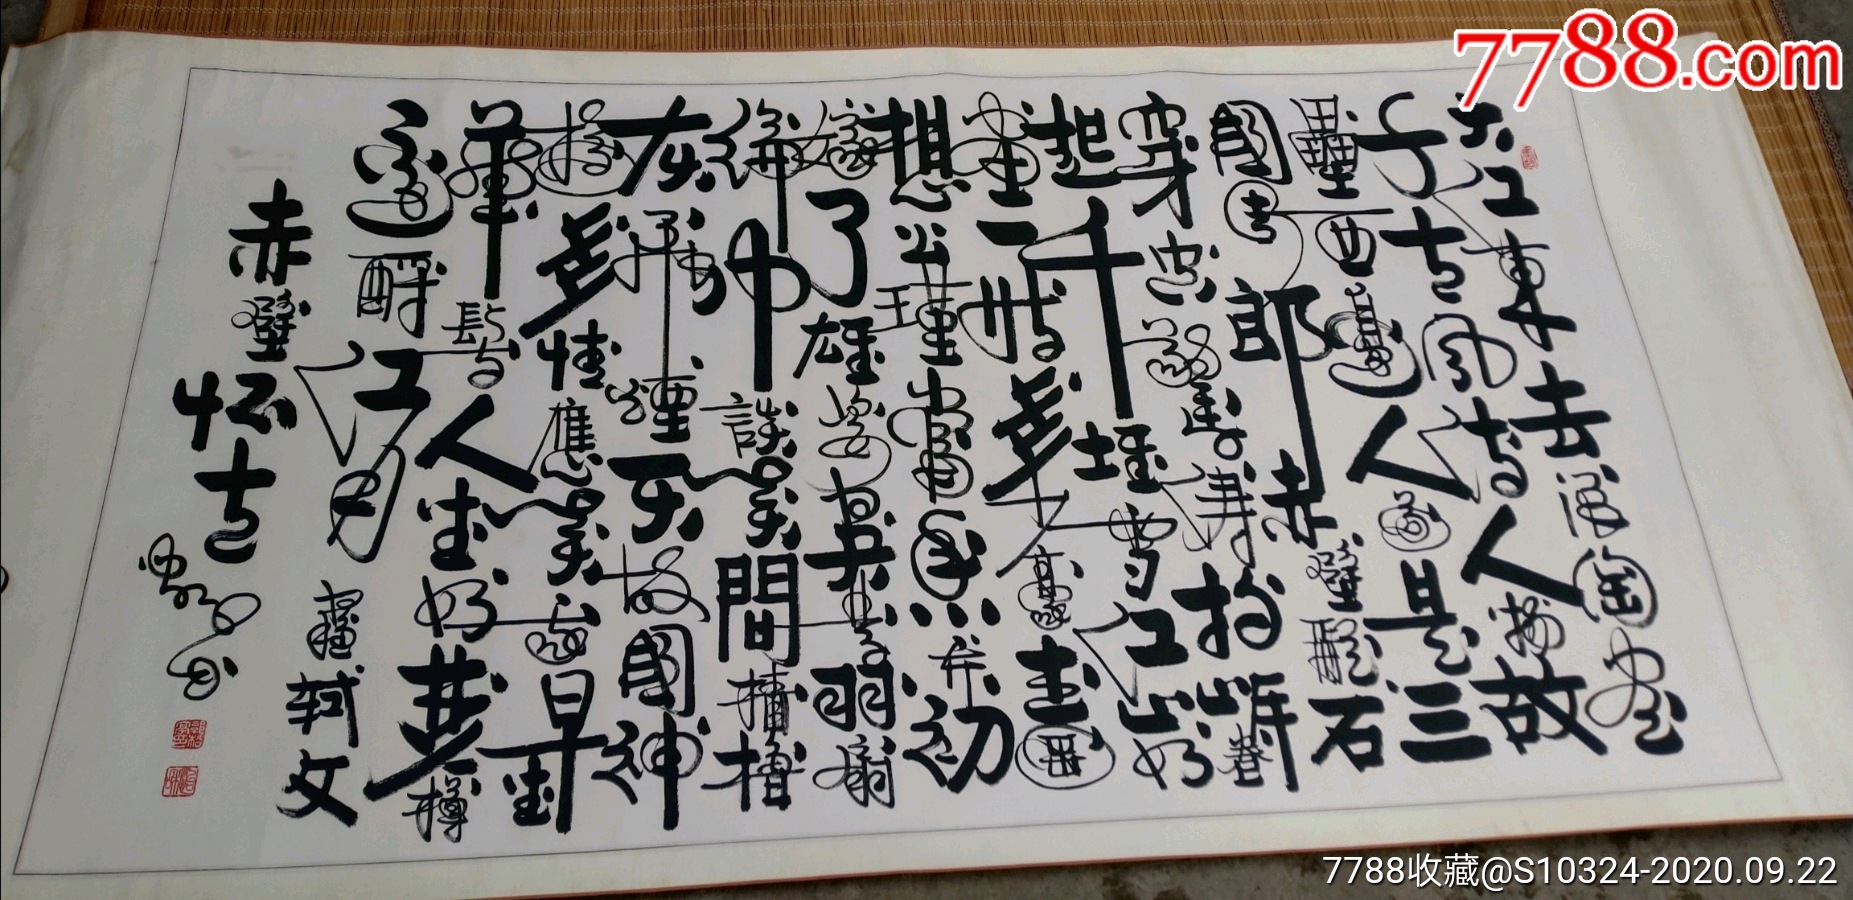 大江東去浪淘盡
千古風流人物故
壘西邊人道是三
國周郎赤壁亂石
穿空驚濤拍岸捲
起千堆雪江山如
畫一時多少豪傑
想公瑾當年小喬初
嫁了雄姿英發羽扇
綸巾談笑間檣櫓
灰飛煙滅故國神
游多情應笑我早生
華髮人生如夢一樽
還酹江月 蘇軾文
赤壁怀古
7788.com
7788收藏@S10324-2020.09.22